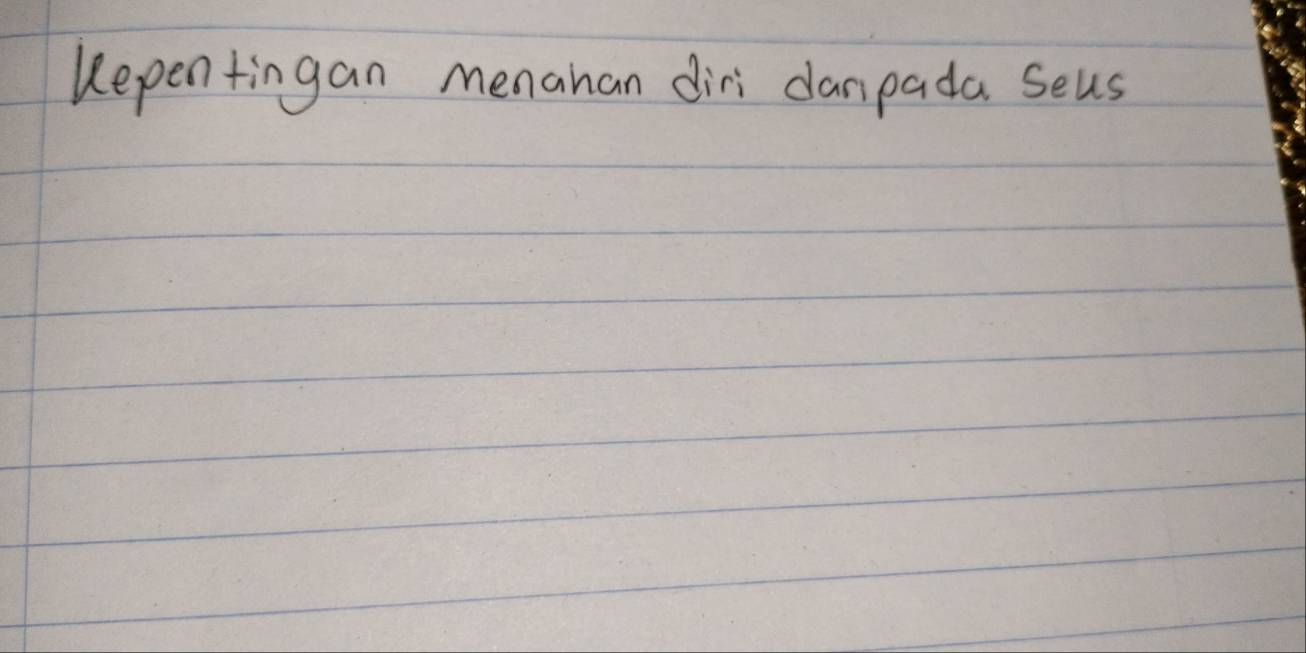 Kepentingan menahan diri daripada seks